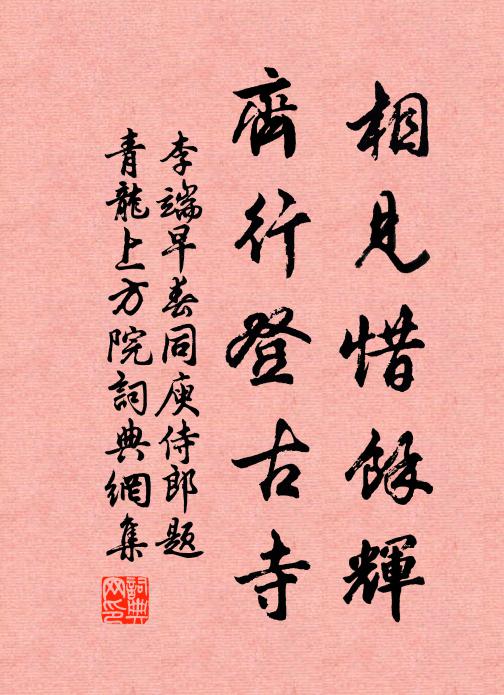 相見惜餘輝
齊行登古寺
李端早春同庾侍郎題
青龍上方院詞典網集
詞典网印